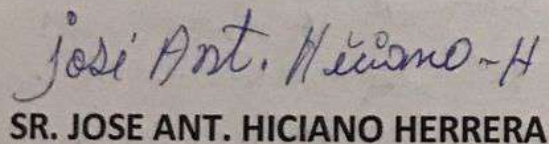 José Ant. Hiciano-H
SR. JOSE ANT. HICIANO HERRERA